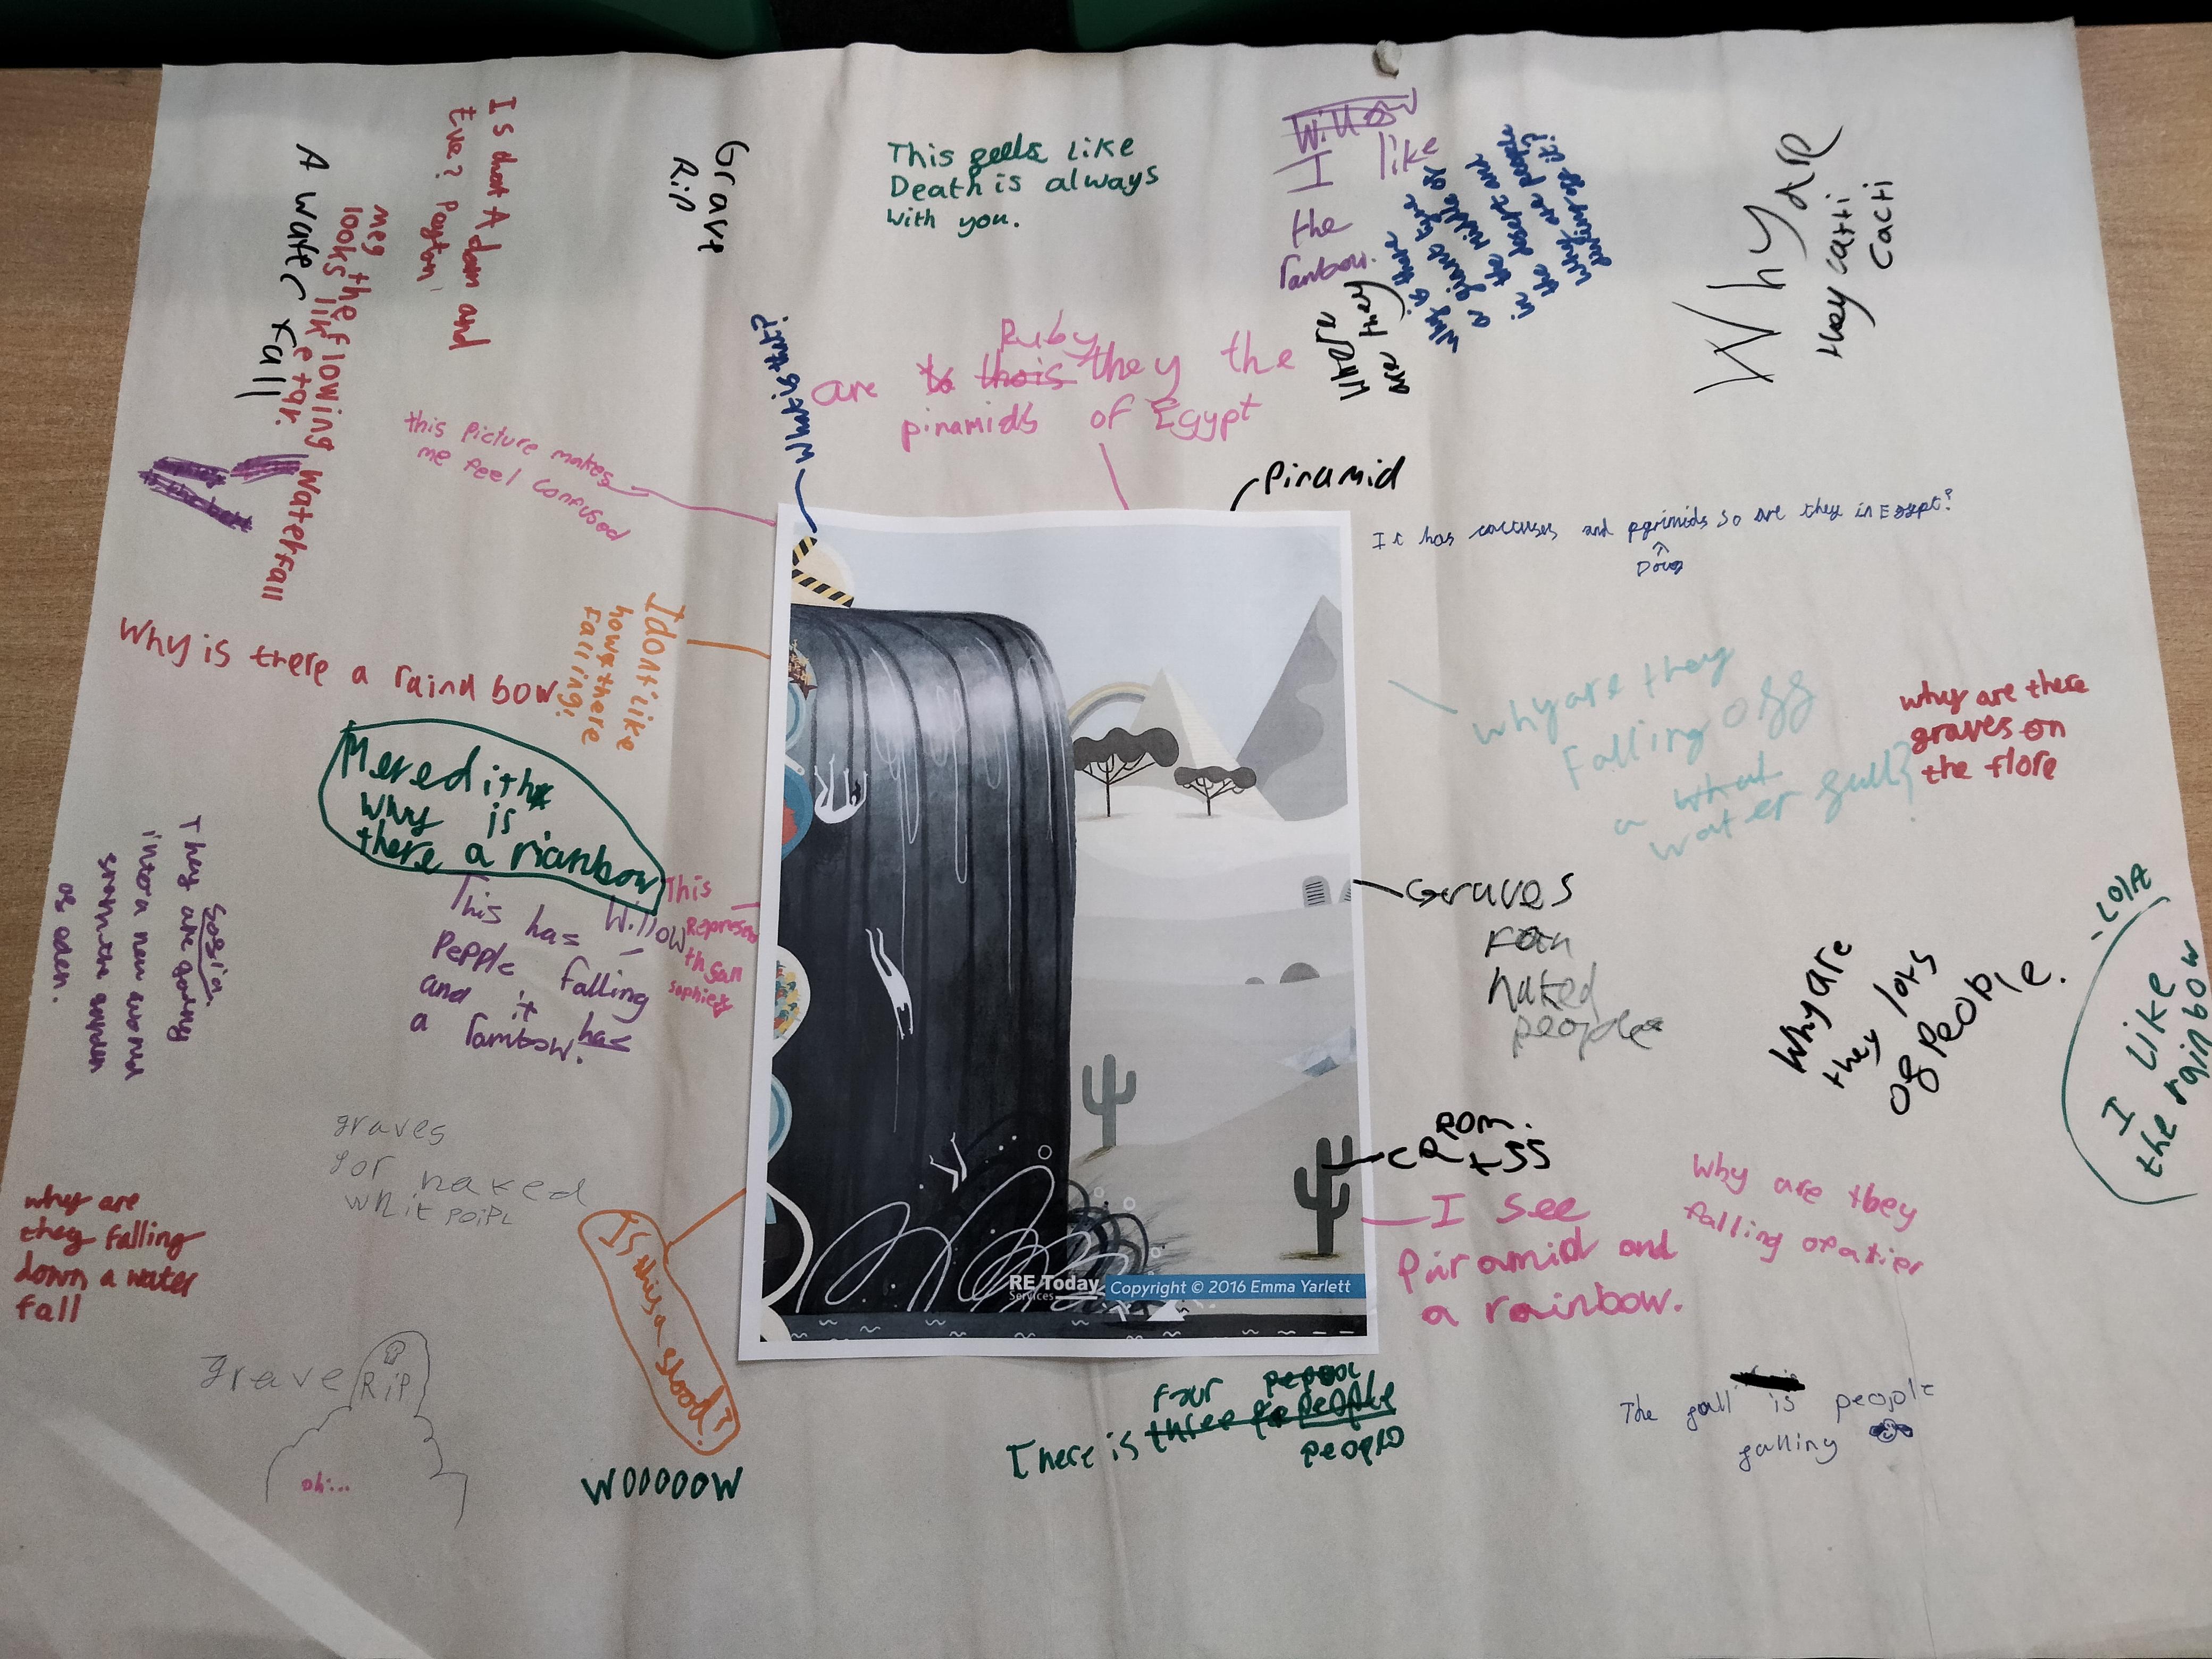 Is that Adam and
Eve? Payton
meg the flowing waterfall
looks like tar.
A water fall
Grave
R.i.P
This feels like
Death is always
with you.
Willow
I like
the
ranbow.
Why is there
a giant tyre
in the middle of
the desert and
why are people
falling off it?
Where
are they
Why are
they catti
cacti
What is that?
Ruby
are to thois they the
pinamids of Egypt
Piramid
this picture makes
me feel confused
It has cactuses and pyrimids so are they in Egypt?
Doug
I dont like
how there
Falling.
Why is there a raind bow
Meredith
why is
there a rianbow
why are they
falling off
a what
water fall?
why are there
graves on
the flore
This
Represents
th Fall
sophie
Willow
This has
Pepple falling
and it has
a rambow.
Sofia.
They are going
into a new world
Graves
naked
people
Why are
they lots
of people.
-Lola
I Like
the rainbow
graves
for naked
whit poipl
ROM.
I see
Piramid and
a rainbow.
Why are they
falling
why are
they falling
down a water
fall
Is this a flood?
RE Today
Services
Copyright © 2016 Emma Yarlett
grave
RiP
oh...
WOOOOOW
Four
There is three people
people
The fall is people
falling